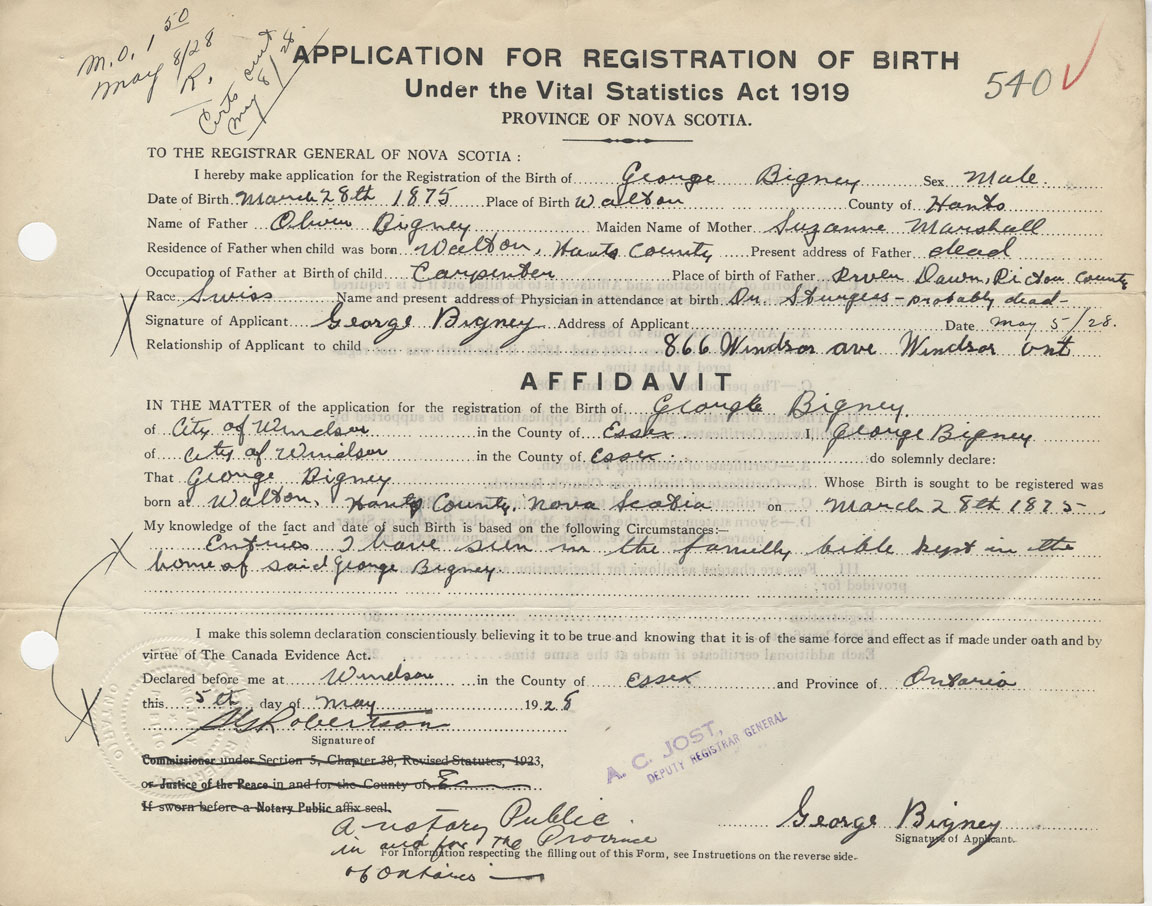 M.O. 1 50
May 8/28
R.
Certs
May 8/28
APPLICATION FOR REGISTRATION OF BIRTH
540 ✓
Under the Vital Statistics Act 1919
PROVINCE OF NOVA SCOTIA.
TO THE REGISTRAR GENERAL OF NOVA SCOTIA :
I hereby make application for the Registration of the Birth of George Bigney Sex Male.
Date of Birth March 28th 1875 Place of Birth Walton County of Hants
Name of Father Oliver Bigney Maiden Name of Mother Suzanne Marshall
Residence of Father when child was born Walton, Hants County Present address of Father dead
Occupation of Father at Birth of child Carpenter Place of birth of Father Dawn, Pictou County
Race. Swiss Name and present address of Physician in attendance at birth. Dr. Sturges - probably dead -
Signature of Applicant George Bigney Address of Applicant Date May 5/28.
Relationship of Applicant to child 866 Windsor ave Windsor ont
AFFIDAVIT
IN THE MATTER of the application for the registration of the Birth of George Bigney.
of City of Windsor in the County of Essex I, George Bigney
of City of Windsor in the County of Essex do solemnly declare:
That George Bigney Whose Birth is sought to be registered was
born at Walton, Hants County, Nova Scotia on March 28th 1875
My knowledge of the fact and date of such Birth is based on the following Circumstances:—
Entries I have seen in the familly bible kept in the
home of said George Bigney
I make this solemn declaration conscientiously believing it to be true and knowing that it is of the same force and effect as if made under oath and by
virtue of The Canada Evidence Act.
Declared before me at Windsor in the County of Essex and Province of Ontario
this 5th day of May 1928
Robertson
Signature of
Commissioner under Section 5, Chapter 38, Revised Statutes, 1923,
or Justice of the Peace in and for the County of E
If sworn before a Notary Public affix seal.
A. C. JOST,
DEPUTY REGISTRAR GENERAL
A notary Public
in and for The Province
of Ontario
George Bigney
Signature of Applicant.
For Information respecting the filling out of this Form, see Instructions on the reverse side.